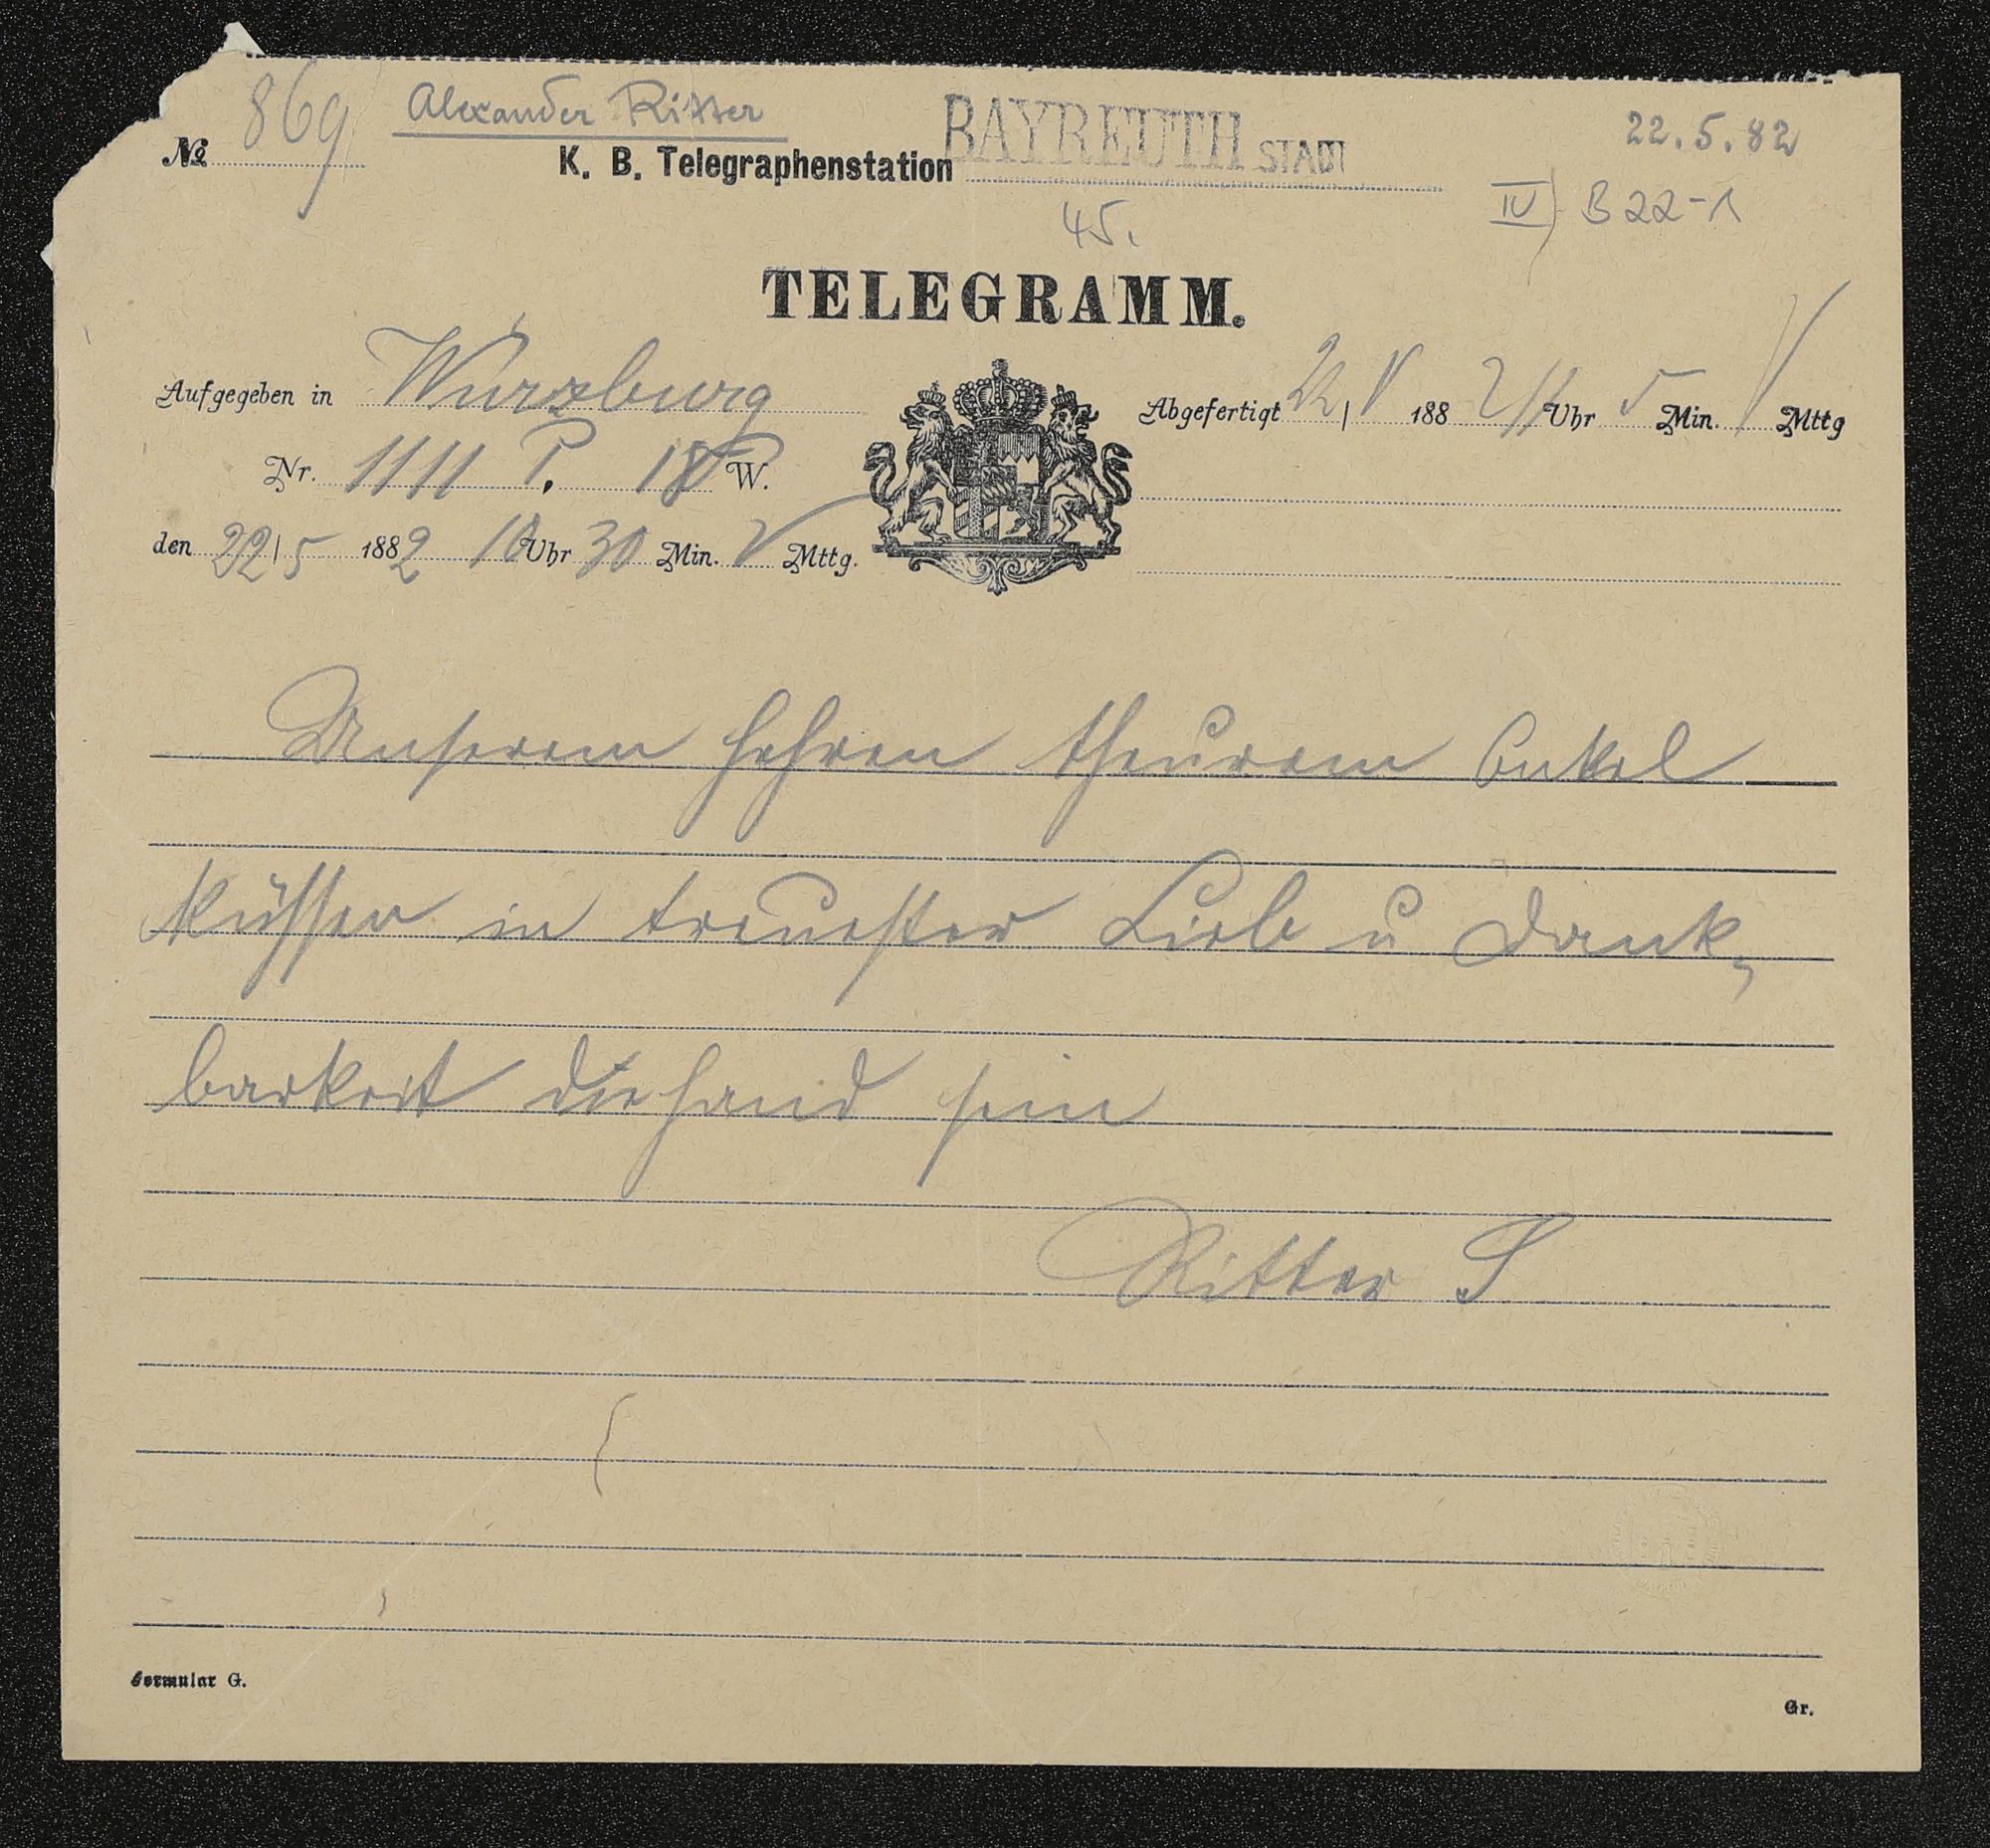 № 869 Alexander Ritter
K. B. Telegraphenstation BAYREUTH STADT
22.5.82
IV) B 22-1
45.
TELEGRAMM.
Aufgegeben in Würzburg
Nr. 1111 P. 18 W.
den 22/5 1882 10 Uhr 30 Min. V Mttg.
Abgefertigt 22/V 1882 11 Uhr 5 Min. V Mttg
Unserem hehren theurem Onkel
küssen in treuester Lieb u Dank,
barkeit die hand sein
Ritter S
Formular G.
Gr.